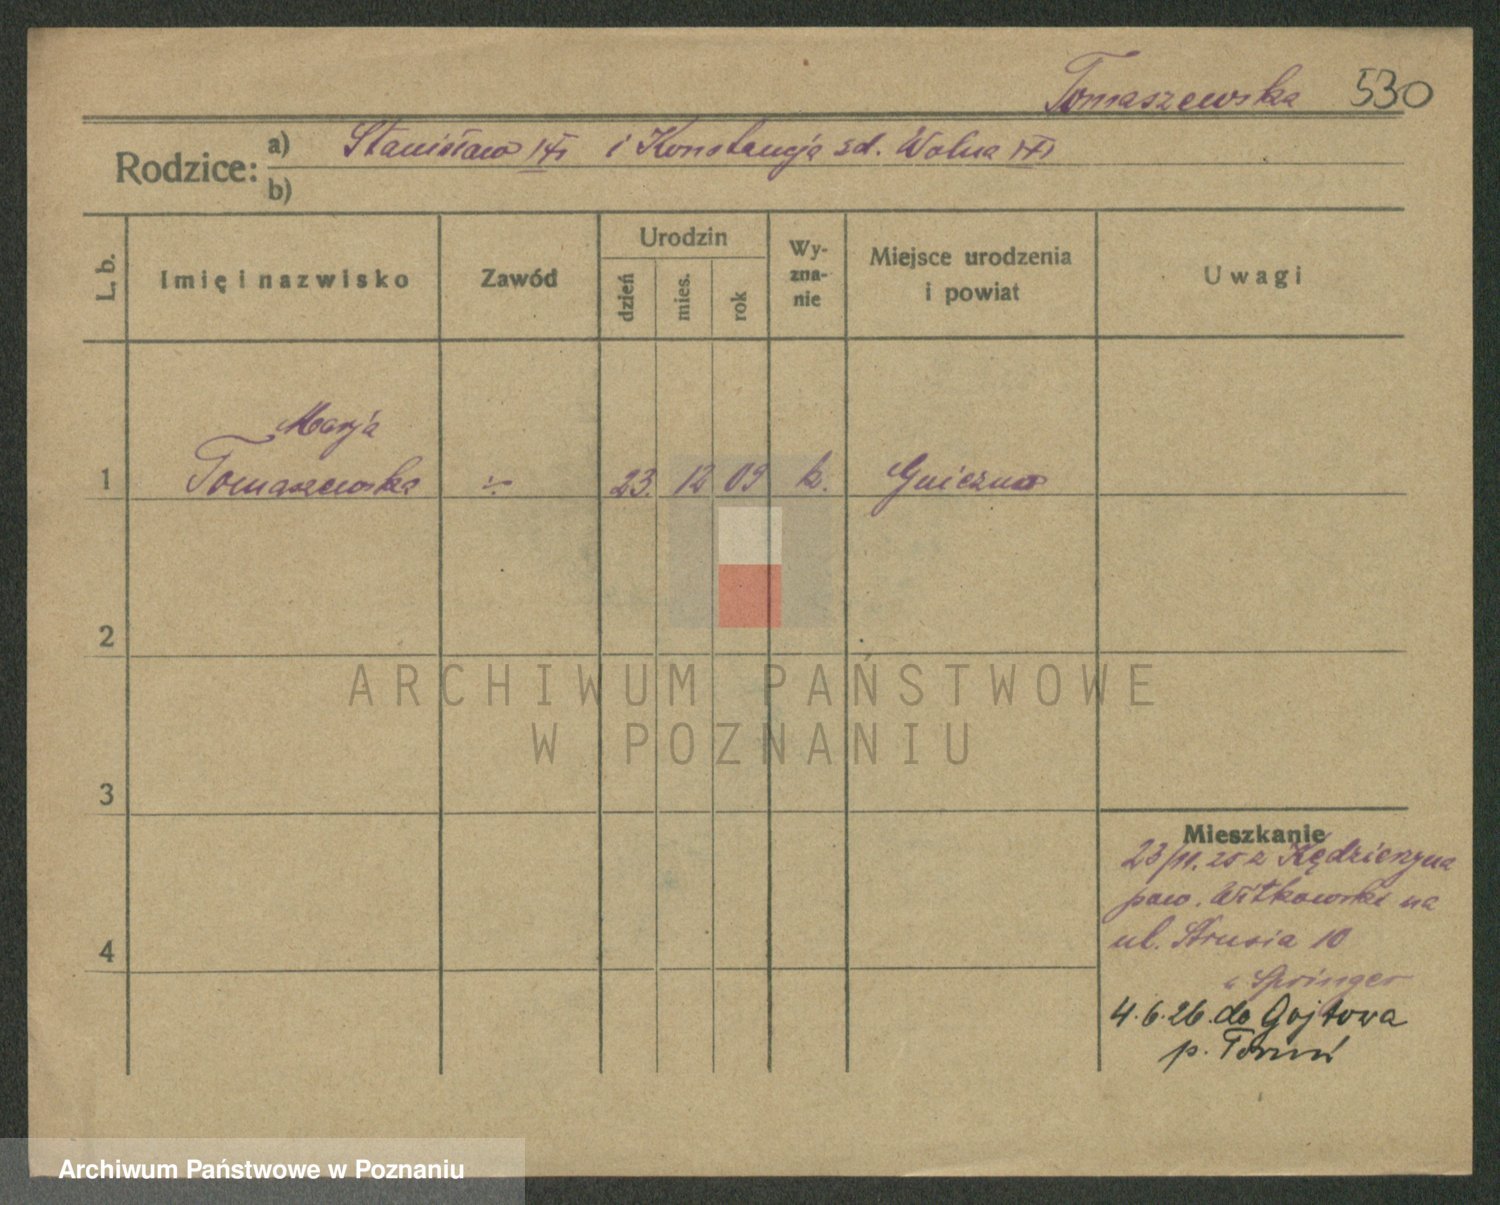 Tomaszewska 530
Rodzice: a) Stanisław /†/ i Konstancja zd. Wolna /†/
b)
L. b.
Imię i nazwisko
Zawód
Urodzin
dzień
mies.
rok
Wy-
zna-
nie
Miejsce urodzenia
i powiat
Uwagi
Marja
1 Tomaszewska 23. 12 09 k. Gniezno
2
ARCHIWUM PAŃSTWOWE
W POZNANIU
3
Mieszkanie
23/11. 25 z Kędzierzyna
pow. Witkowski na
ul. Strusia 10
u Springer
4
4.6.26. do Gojtowa
p. Toruń
Archiwum Państwowe w Poznaniu